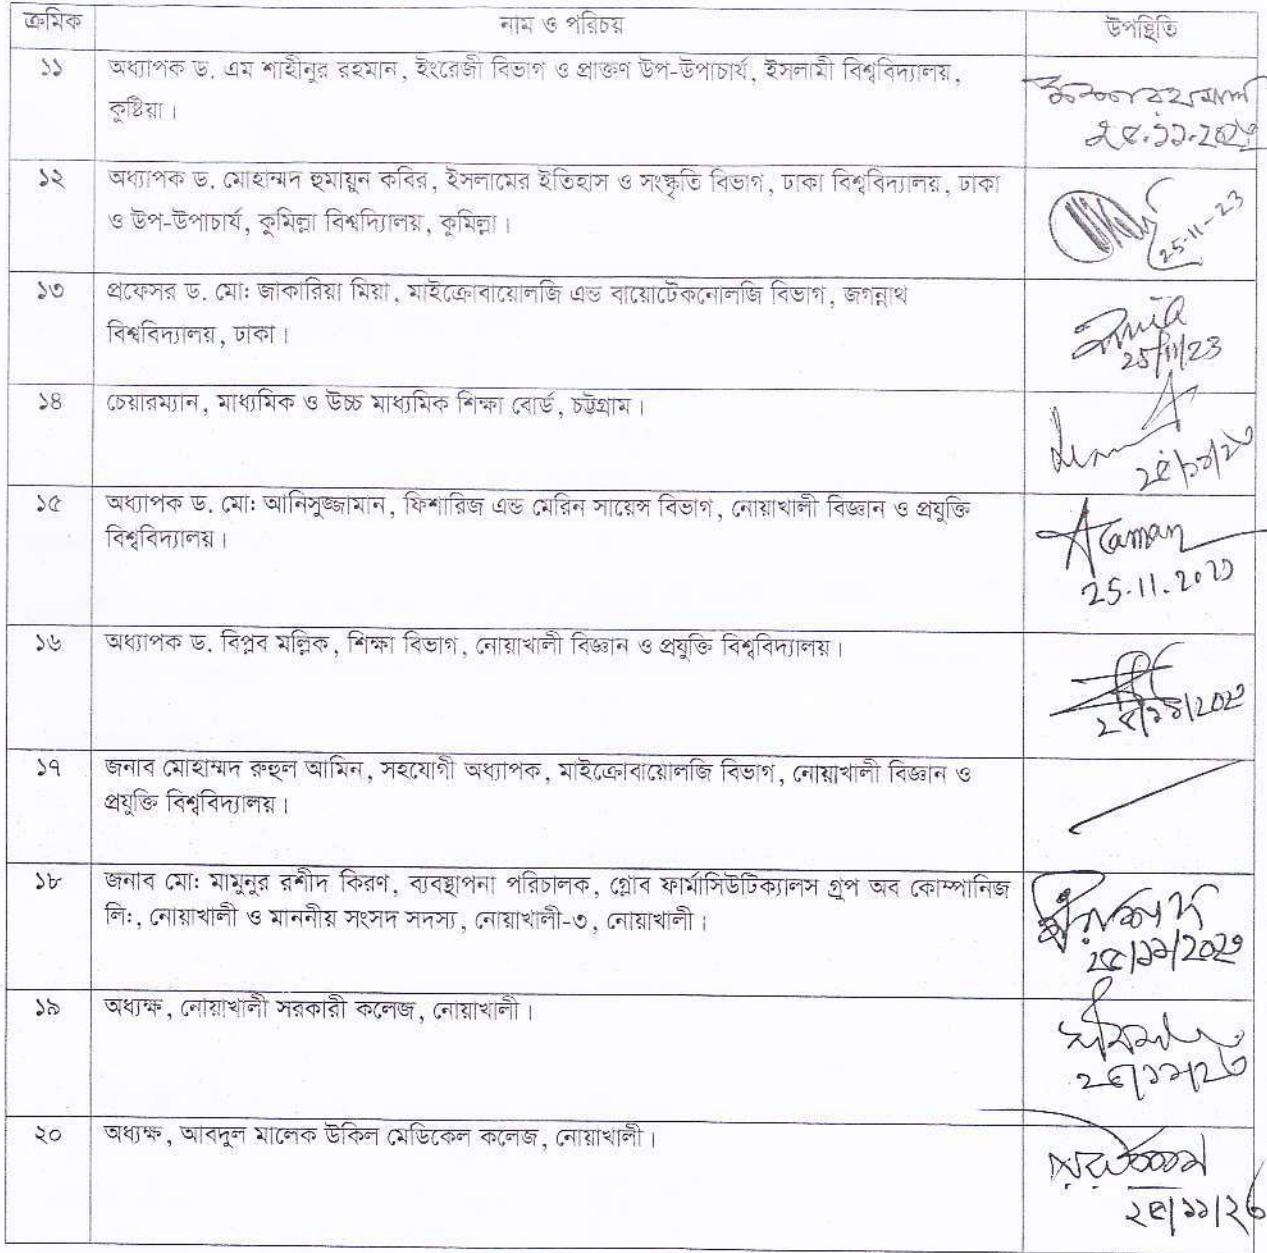 ক্রমিক নাম ও পরিচয় উপস্থিতি
১১ অধ্যাপক ড. এম শাহীনুর রহমান, ইংরেজী বিভাগ ও প্রাক্তণ উপ-উপাচার্য, ইসলামী বিশ্ববিদ্যালয়,
কুষ্টিয়া।
১২ অধ্যাপক ড. মোহাম্মদ হুমায়ুন কবির, ইসলামের ইতিহাস ও সংষ্কৃতি বিভাগ, ঢাকা বিশ্ববিদ্যালয়, ঢাকা
ও উপ-উপাচার্য, কুমিল্লা বিশ্বদ্যিালয়, কুমিল্লা।
25-11-23
১৩ প্রফেসর ড. মো: জাকারিয়া মিয়া, মাইক্রোবায়োলজি এন্ড বায়োটেকনোলজি বিভাগ, জগন্নাথ
বিশ্ববিদ্যালয়, ঢাকা।
25/11/23
১৪ চেয়ারম্যান, মাধ্যমিক ও উচ্চ মাধ্যমিক শিক্ষা বোর্ড, চট্টগ্রাম।
২৫/১১/২৩
১৫ অধ্যাপক ড. মো: আনিসুজ্জামান, ফিশারিজ এন্ড মেরিন সায়েন্স বিভাগ, নোয়াখালী বিজ্ঞান ও প্রযুক্তি
বিশ্ববিদ্যালয়।
25.11.2023
১৬ অধ্যাপক ড. বিপ্লব মল্লিক, শিক্ষা বিভাগ, নোয়াখালী বিজ্ঞান ও প্রযুক্তি বিশ্ববিদ্যালয়।
১৭ জনাব মোহাম্মদ রুহুল আমিন, সহযোগী অধ্যাপক, মাইক্রোবায়োলজি বিভাগ, নোয়াখালী বিজ্ঞান ও
প্রযুক্তি বিশ্ববিদ্যালয়।
১৮ জনাব মো: মামুনুর রশীদ কিরণ, ব্যবস্থাপনা পরিচালক, গ্লোব ফার্মাসিউটিক্যালস গ্রুপ অব কোম্পানিজ
লি:, নোয়াখালী ও মাননীয় সংসদ সদস্য, নোয়াখালী-৩, নোয়াখালী।
২৫/১১/২০২৩
১৯ অধ্যক্ষ, নোয়াখালী সরকারী কলেজ, নোয়াখালী।
২৫/১১/২৩
২০ অধ্যক্ষ, আবদুল মালেক উকিল মেডিকেল কলেজ, নোয়াখালী।
২৫/১১/২৩